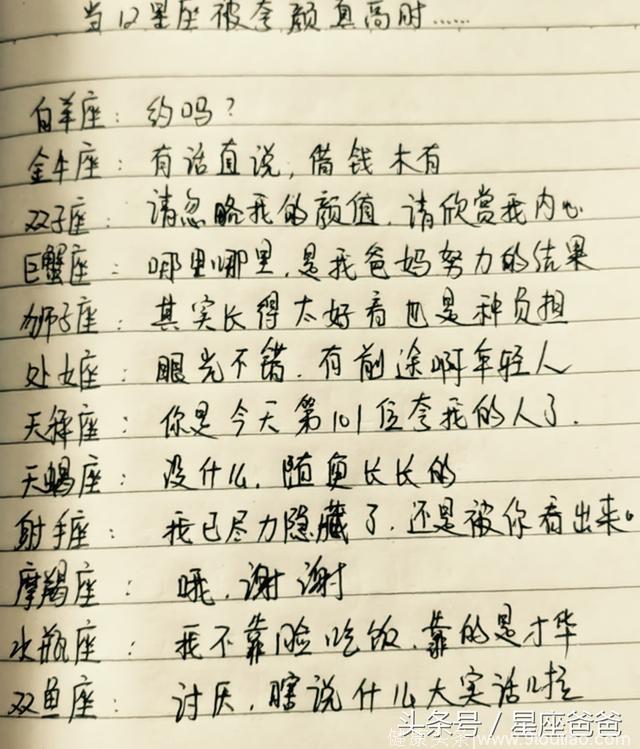 当12星座被夸颜真高时……
白羊座：约吗？
金牛座：有话直说，借钱木有
双子座：请忽略我的颜值，请欣赏我内心
巨蟹座：哪里哪里，是我爸妈努力的结果
狮子座：其实长得太好看也是种负担
处女座：眼光不错，有前途啊年轻人
天秤座：你是今天第101位夸我的人了．
天蝎座：没什么，随便长长的
射手座：我已尽力隐藏了，还是被你看出来。
摩羯座：哦，谢谢
水瓶座：我不靠脸吃饭，靠的是才华
双鱼座：讨厌，瞎说什么大实话啦
头条号／星座爸爸